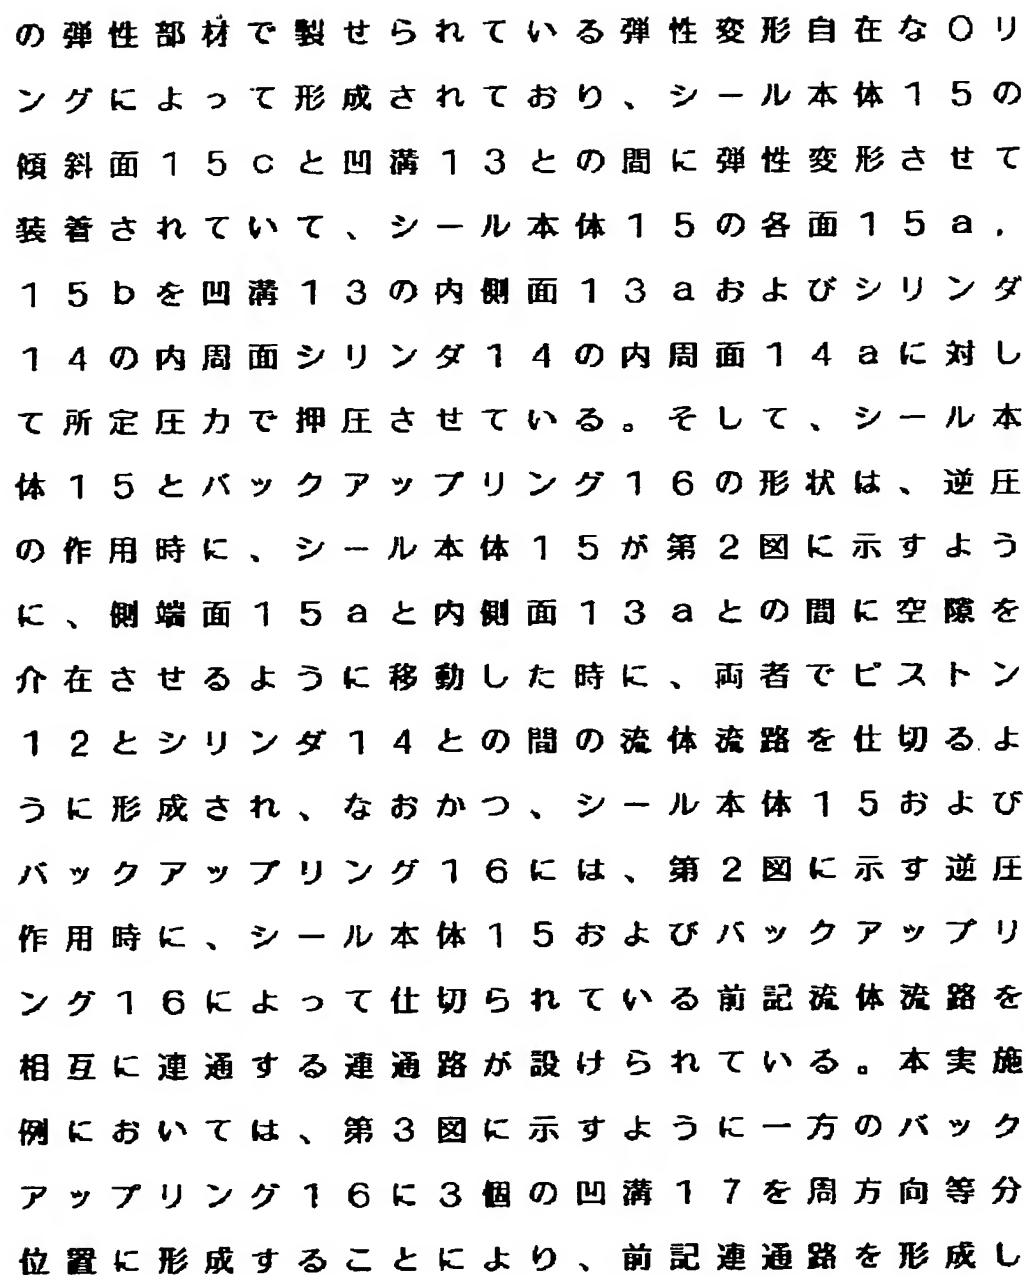 の弾性部材で製せられている弾性変形自在なOリ
ングによって形成されており、シール本体15の
傾斜面15cと凹溝13との間に弾性変形させて
装着されていて、シール本体15の各面15a，
15bを凹溝13の内側面13aおよびシリンダ
14の内周面シリンダ14の内周面14aに対し
て所定圧力で押圧させている。そして、シール本
体15とバックアップリング16の形状は、逆圧
の作用時に、シール本体15が第2図に示すよう
に、側端面15aと内側面13aとの間に空隙を
介在させるように移動した時に、両者でピストン
12とシリンダ14との間の流体流路を仕切るよ
うに形成され、なおかつ、シール本体15および
バックアップリング16には、第2図に示す逆圧
作用時に、シール本体15およびバックアップリ
ング16によって仕切られている前記流体流路を
相互に連通する連通路が設けられている。本実施
例においては、第3図に示すように一方のバック
アップリング16に3個の凹溝17を周方向等分
位置に形成することにより、前記連通路を形成し